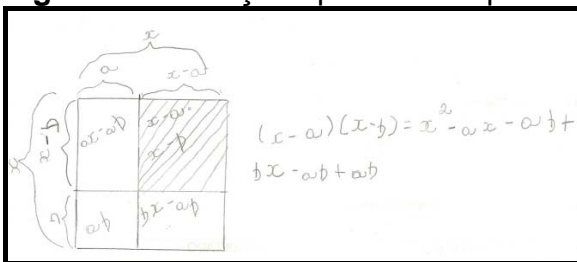 x
a x-a
x-b
ax-ab
x-a.
x-b
x
ab
bx-ab
(x-a)(x-b)=x²-ax-ab+
bx-ab+ab